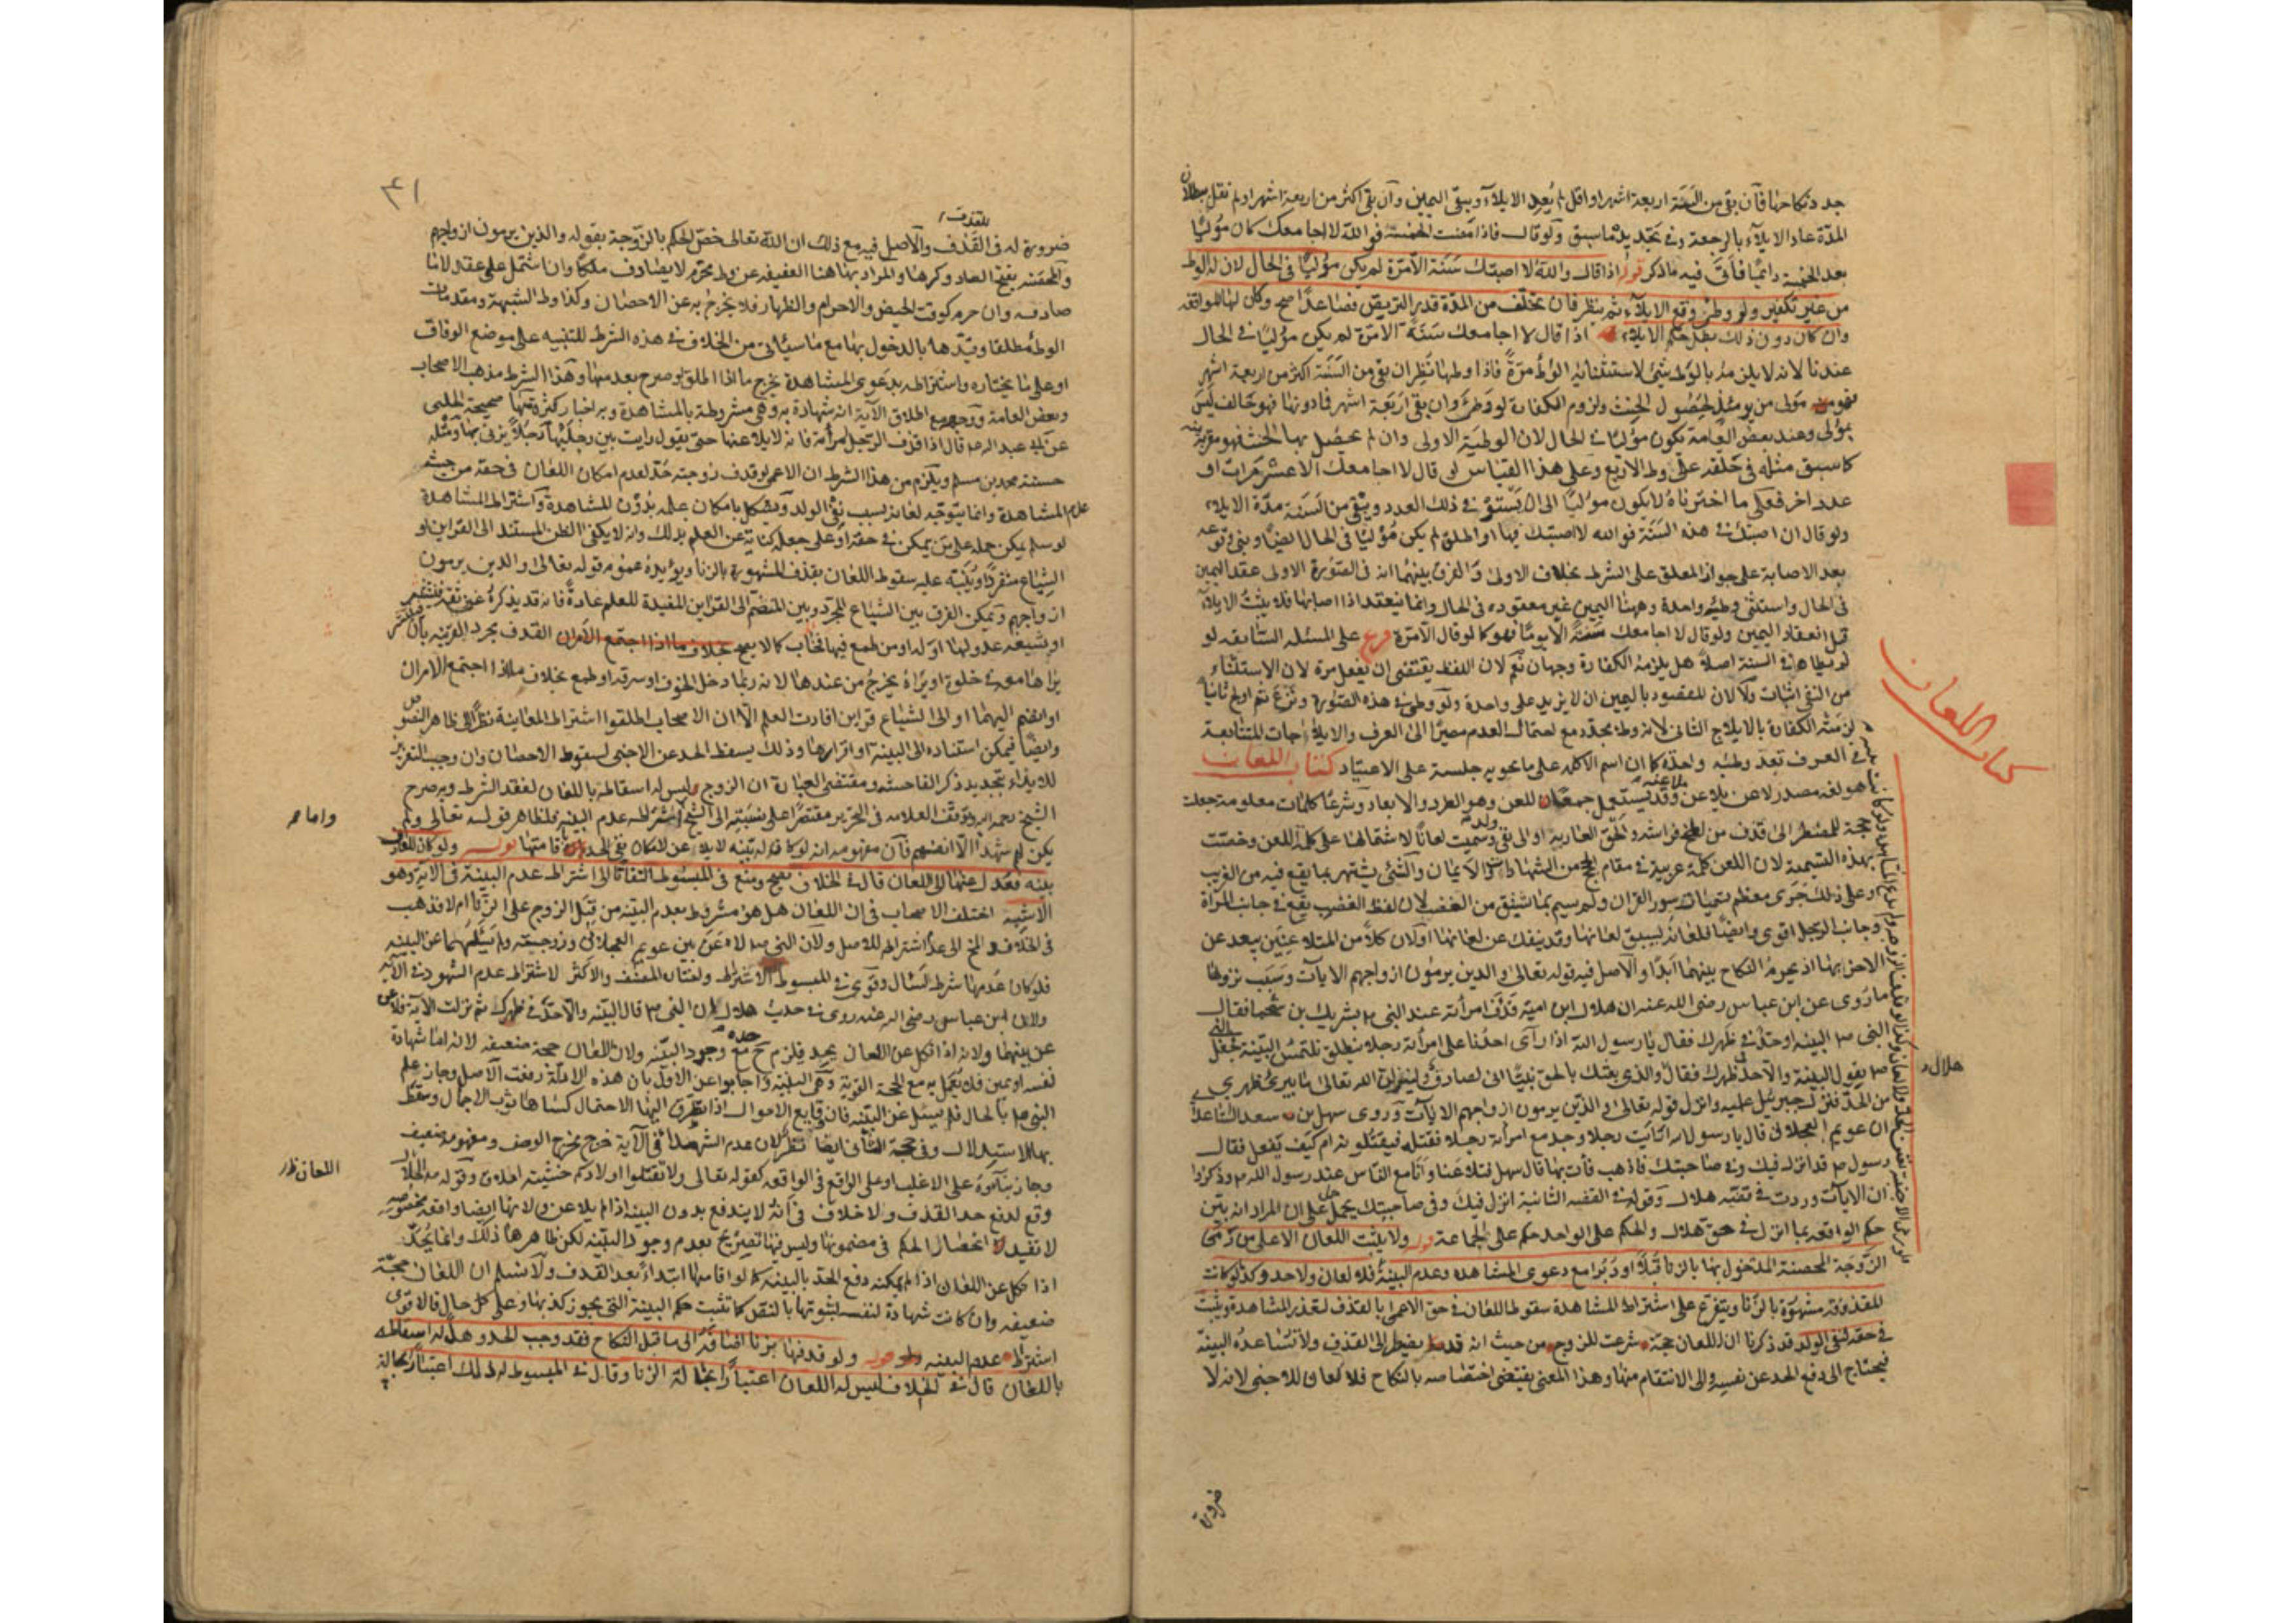 جدد نكاحها فان بقي من السنة اربعة اشهر او اقل لم يعد الايلاء ويبقى اليمين وان بقي اكثر من اربعة اشهر ولم نقل ببطلان
المدة عاد الايلاء بالرجعة وفي تجديد ما سبق ولو قال فاذا مضت الخمسة فوالله لا اجامعك كان موليا
بعد الخمسة دائما فيأتي فيه ما ذكر قوله اذا قال والله لا اصبتك سنة الا مرة لم يكن موليا في الحال لان له الوطء
من غير تكفير ولو وطئ وقع الايلاء ثم ينظر فان تخلف من المدة قدر التربص فصاعدا صح وكان لها المواقفة
وان كان دون ذلك بطل حكم الايلاء اذا قال لا اجامعك سنة الا مرة لم يكن موليا في الحال
عندنا لانه لا يلزمه بالوطء شيء لاستثنائه الوطء مرة فاذا وطئها نظر ان بقي من السنة اكثر من اربعة اشهر
فهو مولى من يومئذ لحصول الحنث ولزوم الكفارة لو وطئ وان بقي اربعة اشهر فما دونها فهو حالف ليس
بمولى وعند بعض العامة يكون موليا في الحال لان الوطئة الاولى وان لم يحصل بها الحنث فهو مقربة منه
كما سبق مثله في حلفه على وطء الاربع وعلى هذا القياس لو قال لا اجامعك الا عشر مرات او
عدد اخر فعلى ما اخترناه لا يكون موليا الى ان يستوفي ذلك العدد ويبقى من السنة مدة الايلاء
ولو قال ان اصبتك في هذه السنة فوالله لا اصبتك فيها او اطلق لم يكن موليا في الحال ايضا وبني وقوعه
بعد الاصابة على جواز المعلق على الشرط بخلاف الاولى والفرق بينهما انه في الصورة الاولى عقد اليمين
في الحال واستثنى وطئه واحدة وههنا اليمين غير معقودة في الحال وانما ينعقد اذا اصابها فلا يثبت الايلاء
قبل انعقاد اليمين ولو قال لا اجامعك سنة الا يوما فهو كما لو قال الا مرة فرع على المسئلة السابقة لو
لم يطأها في السنة اصلا هل يلزمه الكفارة وجهان نعم لان اللفظ يقتضي ان يفعل مرة لان الاستثناء
من النفي اثبات ولا لان المقصود باليمين ان لا يزيد على واحدة ولو وطئ في هذه الصورة ونزع ثم اولج ثانيا
لزمته الكفارة بالايلاج الثاني لانه وطء مجدد مع احتمال العدم مصيرا الى العرف والايلاجات المتتابعة
في العرف تعد وطئه واحدة كما ان اسم الاكلة على ما يحويه جلسة على الاعتياد كتاب اللعان
هو لغة مصدر لاعن يلاعن وقد يستعمل جمعا للعن وهو الطرد والابعاد وشرعا كلمات معلومة جعلت
حجة للمضطر الى قذف من لطخ فراشه والحق العار به او الى نفي ولد وسميت لعانا لاشتمالها على كلمة اللعن وخصت
بهذه التسمية لان اللعن كلمة غريبة في مقام الحج من الشهادات والايمان والشيء يشتهر بما يقع فيه من الغريب
وعلى ذلك جرى معظم تسميات سور القران ولم يسم بما اشتق من الغضب لان لفظ الغضب يقع في جانب المرأة
وجانب الرجل اقوى وايضا فلعانه يسبق لعانها وقد ينفك عن لعانها او لان كلا من المتلاعنين يبعد عن
الاخر بها اذ يحرم النكاح بينهما ابدا والاصل فيه قوله تعالى والذين يرمون ازواجهم الايات وسبب نزولها
ما روى عن ابن عباس رضي الله عنه ان هلال ابن امية قذف امرأته عند النبي ص بشريك بن سحما فقال
النبي ص البينة او حد في ظهرك فقال يا رسول الله اذا رأى احدنا على امرأته رجلا ينطلق يلتمس البينة فجعل النبي
ص يقول البينة والا حد في ظهرك فقال والذي بعثك بالحق نبيا اني لصادق ولينزلن الله تعالى ما يبرئ ظهري
من الحد فنزل جبرئيل عليه وانزل قوله تعالى والذين يرمون ازواجهم الايات وروى سهل بن سعد الساعدي
ان عويمر العجلاني قال يا رسول الله ارأيت رجلا وجد مع امرأته رجلا فقتله فيقتلونه ام كيف يفعل فقال
رسول ص قد انزل فيك وفي صاحبتك فاذهب فأت بها قال سهل فتلاعنا وانا مع الناس عند رسول الله ص وذكروا
ان الايات وردت في قضية هلال وقوله في القصة الثانية انزل فيك وفي صاحبتك يحمل على ان المراد انه بين
حكم الواقعة بما انزل في حق هلال والحكم على الواحد حكم على الجماعة قوله ولا يثبت اللعان الا على من رمى
الزوجة المحصنة المدخول بها بالزنا قبلا او دبرا مع دعوى المشاهدة وعدم البينة فلا لعان ولا حد وكذا لو كانت
المقذوفة مشهورة بالزنا ويتفرع على اشتراط المشاهدة سقوط اللعان في حق الاعمى بالقذف لتعذر المشاهدة ويثبت
في حقه لنفي الولد قد ذكرنا ان اللعان حجة شرعت للزوج من حيث انه قد يضطر الى القذف ولا تساعده البينة
فيحتاج الى دفع الحد عن نفسه والى الانتقام منها وهذا المعنى يقتضي اختصاصه بالنكاح فلا لعان للاجنبي لانه لا
كتاب اللعان
هلال
ضرورة
٤١
للقذف
ضرورة له في القذف والاصل فيه مع ذلك ان الله تعالى خص الحكم بالزوجة بقوله والذين يرمون ازواجهم
والمحصنة بفتح الصاد وكسرها والمراد بها هنا العفيفة عن وطء محرم لا يصادف ملكا وان اشتمل على عقد لا ما
صادفه وان حرم كوقت الحيض والاحرام والظهار فلا يخرج به عن الاحصان وكذا وطء الشبهة ومقدمات
الوطء مطلقا وقيدها بالدخول بها مع ما سيأتي من الخلاف في هذه الشرط للتنبيه على موضع الوفاق
او على ما يختاره واشتراطه بدعوى المشاهدة يخرج ما اذا اطلق او صرح بعدمها وهذا الشرط مذهب الاصحاب
وبعض العامة ووجهه مع اطلاق الآية انه شهادة به وهي مشروطة بالمشاهدة وبه اخبار كثيرة منها صحيحة الحلبي
عن ابي عبد الله قال اذا قذف الرجل امرأته فانه لا يلاعنها حتى يقول رايت بين رجليها رجلا يزني بها ومثله
حسنة محمد بن مسلم ويلزم من هذا الشرط ان الاعمى لو قذف زوجته حد لعدم امكان اللعان في حقه من حيث
عدم المشاهدة وانما يتوجه لعانه بسبب نفي الولد ويشكل بامكان علمه بدون المشاهدة واشتراط المشاهدة
لو سلم يمكن حمله على من يمكن في حقه او على جعله كناية عن العلم بذلك وانه لا يكفي الظن المستند الى القراين او
الشياع منفردا ونبه عليه سقوط اللعان بقذف المشهورة بالزنا ويؤيده عموم قوله تعالى والذين يرمون
ازواجهم ويمكن الفرق بين الشياع المجرد وبين المنضم الى القراين المفيدة للعلم عادة فانه قد يذكره غير ثقة فينتشر
او يشيعه عدو لها او له او من طمع فيها فخاب كما لا يصح بخلاف ما اذا اجتمع الامران القذف بمجرد القرينة بان
يراها معه في خلوة او يراه يخرج من عندها لانه ربما دخل لخوف او سرقة او طمع بخلاف ما اذا اجتمع الامران
او انضم اليهما او الى الشياع قراين افادت العلم الا ان الاصحاب اطلقوا اشتراط المعاينة نظرا الى ظاهر النصوص
وايضا فيمكن استناده الى البينة او اقرارها وذلك يسقط الحد عن الاجنبي لسقوط الاحصان وان وجب التعزير
للايذاء بتجديد ذكر الفاحشة ومقتضى العبارة ان الزوج ليس له اسقاطه باللعان لفقد الشرط وبه صرح
الشيخ رحمه الله وتوقف العلامة في التحرير مقتصرا على نسبته الى الشيخ اشتراط عدم البينة فلظاهر قوله تعالى ولم
يكن لهم شهداء الا انفسهم فان مفهومه انه لو كان له بينة لا يلاعن لامكان نفي الحد باقامتها قوله ولو كان للقاذف
بينة فعدل عنها الى اللعان قال في الخلاف يصح ومنع في المبسوط التفاتا الى اشتراط عدم البينة في الآية وهو
الاشبه اختلف الاصحاب في ان اللعان هل هو مشروط بعدم البينة من قبل الزوج على الزنا ام لا فذهب
في الخلاف الى عدم اشتراطه للاصل ولان النبي ص لاعن بين عويمر العجلاني وزوجته ولم يسألهما عن البينة
فلو كان عدمها شرطا لسأل وقوى في المبسوط الاشتراط واختاره المصنف والاكثر لاشتراط عدم الشهود في الآية
ولان ابن عباس رضي الله عنه روى في حديث هلال ان النبي ص قال البينة والا حد في ظهرك ثم نزلت الآية فلاعن
عن بينهما ولانه اذا نكل عن اللعان يحد فيلزم ح حده مع وجود البينة ولان اللعان حجة ضعيفة لانه اما شهادة
لنفسه او يمين فلا يعمل به مع الحجة القوية وهي البينة واجابوا عن الاول بان هذه الادلة رفعت الاصل وجاز علم
النبي ص بالحال فلم يسئل عن البينة فان وقايع الاحوال اذا تطرق اليها الاحتمال كساها ثوب الاجمال وسقط
بها الاستدلال وفي حجة الثاني ايضا نظر لان عدم الشهداء في الآية خرج مخرج الوصف ومفهومه ضعيف
وجاز بناؤه على الاغلب او على الواقع في الواقعة كقوله تعالى ولا تقتلوا اولادكم خشية املاق وقوله ص لهلال
وقع لدفع حد القذف ولا خلاف في انه لا يندفع بدون البينة اذا لم يلاعن ولانها ايضا واقعة مخصوصة
لا تفيد انحصار الحكم في مضمونها وليس فيها تصريح بعدم وجود البينة لكن ظاهرها ذلك وانما يحد
اذا نكل عن اللعان اذا لم يمكنه دفع الحد بالبينة كما لو اقامها ابتداء بعد القذف ولا نسلم ان اللعان حجة
ضعيفة وان كانت شهادة لنفسه لثبوتها بالنقل كما تثبت حكم البينة التي يجوز كذبها وعلى كل حال فالاقوى
اشتراط عدم البينة قوله ولو قذفها بزنا اضافه الى ما قبل النكاح فقد وجب الحد وهل له اسقاطه
باللعان قال في الخلاف ليس له اللعان اعتبارا بحالة الزنا وقال في المبسوط له ذلك اعتبارا بحالة
واما
اللعان